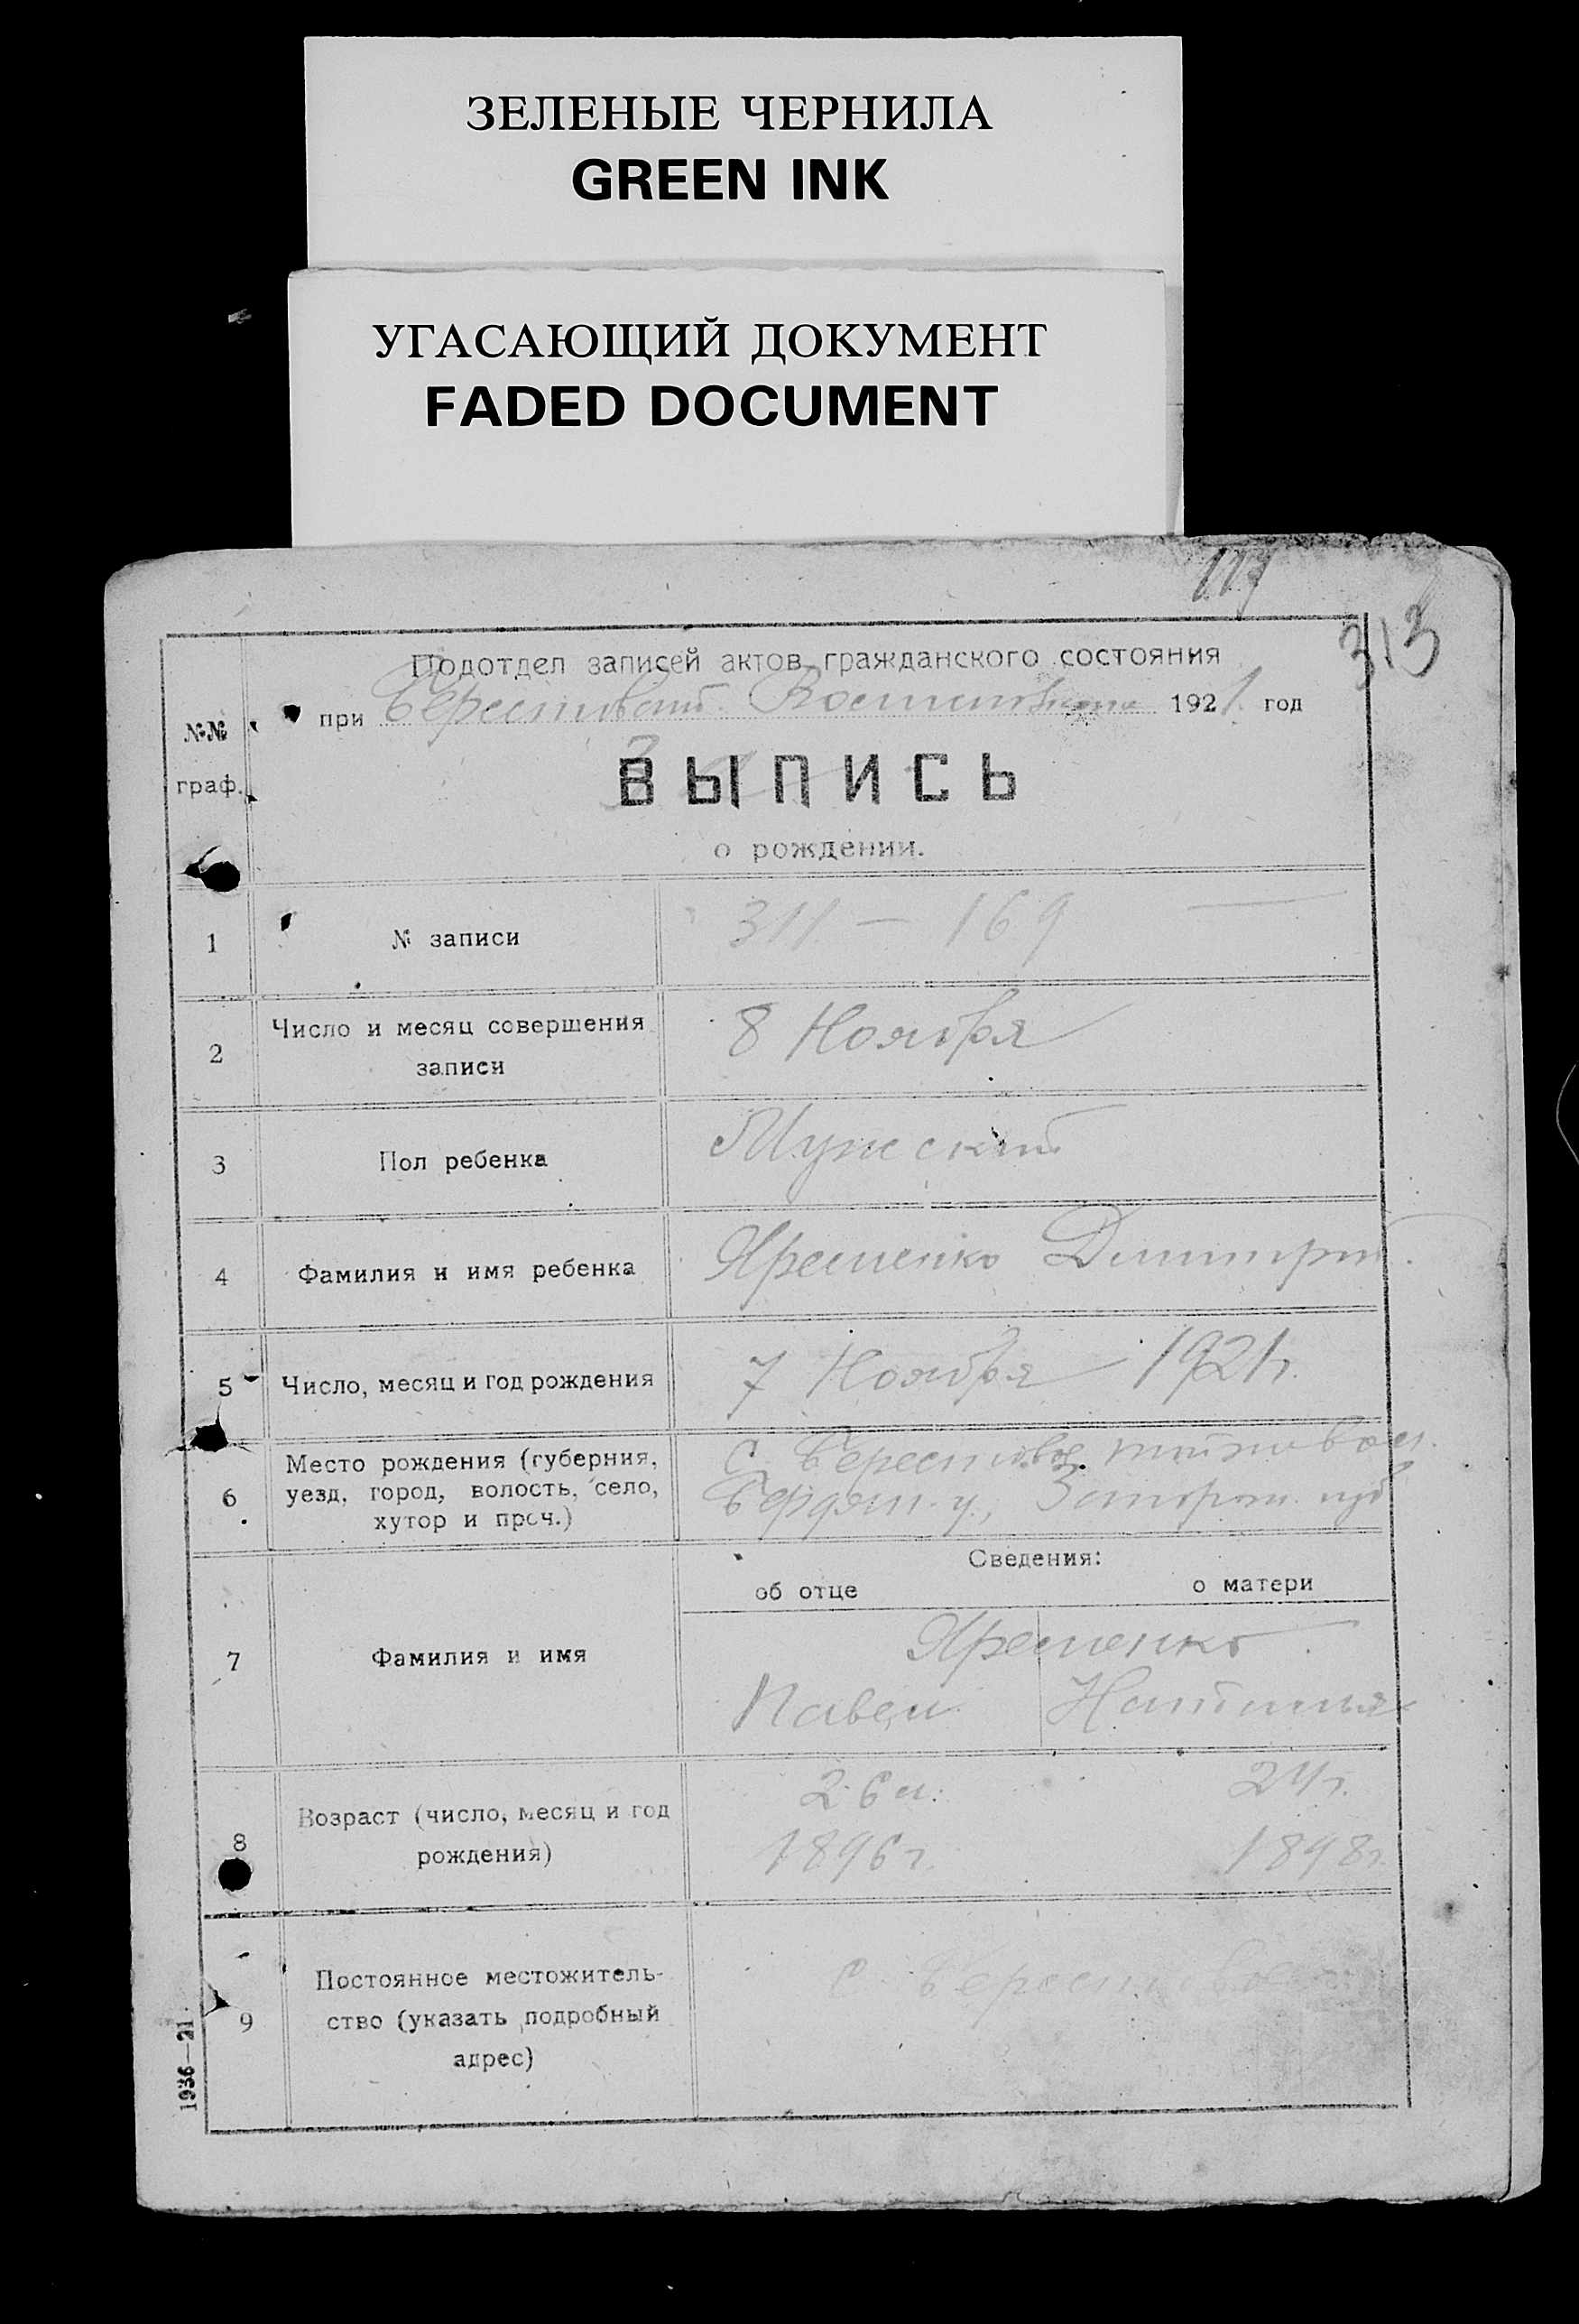 ЗЕЛЕНЫЕ ЧЕРНИЛА
GREEN INK
УГАСАЮЩИЙ ДОКУМЕНТ
FADED DOCUMENT
117
313
Подотдел записей актов гражданского состояния
при 1921 год
№№
граф.
ВЫПИСЬ
о рождении.
1 № записи 311 — 169
2 Число и месяц совершения
записи
8 Ноября
3 Пол ребенка Мужской
4 Фамилия и имя ребенка Яременко Дмитрий
5 Число, месяц и год рождения 7 Ноября 1921 г.
6 Место рождения (губерния,
уезд, город, волость, село,
хутор и проч.)
с. Берестовое вол.
Бердян. у., Запорож. губ
Сведения:
об отце о матери
7 Фамилия и имя
Яременко
Павел Наталья
8 Возраст (число, месяц и год
рождения)
26 л. 24 г.
1896 г. 1898 г.
9 Постоянное местожитель-
ство (указать подробный
адрес)
с. Берестовое
1936—21